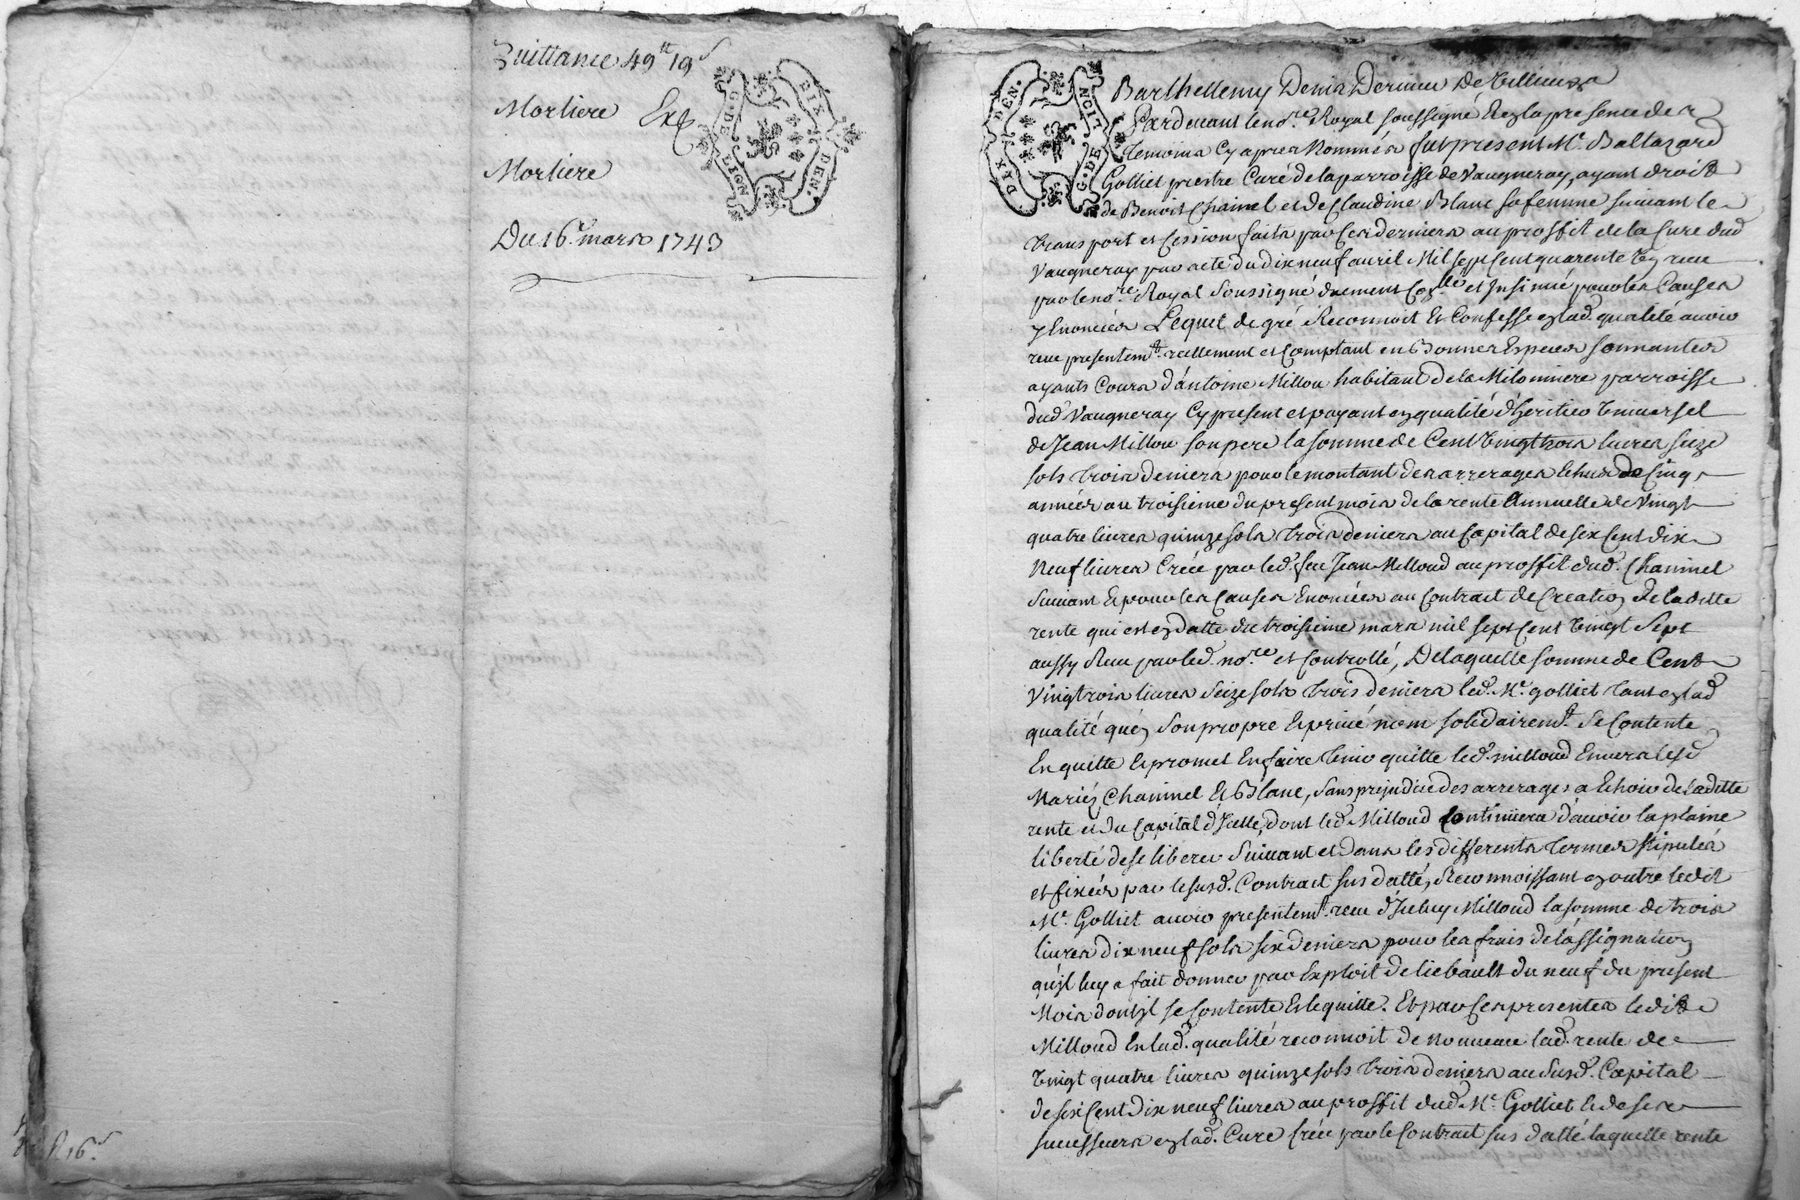 Quittance 49tt 19s
Morliere Exp
Morliere
Du 16e mars 1743
G. DE
DIX DEN.
R 16s
DIX DEN.
G. DE
Barthellemy Denis
Pardevant le no.re Royal soussigné Et en la presence des
temoins Cy apres Nommés fut present Mr. Baltazard
Golliet prestre Curé de la parroisse de Vaugneray, ayant droit
de Benoit Chainel et de Claudine Blanc sa femme suivant le
transport et Cession faits par Ces derniers au proffit de la Cure dud
Vaugneray par acte du dix neuf avril Mil sept Cent quarente Un receu
par le no.re Royal Soussigné duement et Insinué pour les Causes
y Enoncées Lequel de gré Reconnoit Et Confesse en lad. qualité avoir
receu presentemt. reellement et Comptant en Bonnes Especes sonnantes
ayants Cours d'antoine Millou habitant de la Milonniere parroisse
dud Vaugneray Cy present et payant en qualité d'heritier Universel
de Jean Millou son pere la somme de Cent Vingt trois livres seize
sols trois deniers pour le montant des arrerages Echus de Cinq
années au troisieme du present mois de la rente Annuelle de Vingt
quatre livres quinze sols trois deniers au Capital de six Cent dix
Neuf livres Créée par led. feu Jean Milloud au proffit dud. Chainnel
Suivant Et pour les Causes Enoncées au Contrat de Creation de la ditte
rente qui est en datte du troisieme mars mil sept Cent Vingt Sept
aussy Receu par led. no.re et Controllé, De laquelle somme de Cent
Vingtrois livres Seize sols trois deniers led. Mr. golliet tant en lad
qualité qu'en Son propre Et privé nom solidairemt. Se Contente
En quitte Et promet En faire tenir quitte led. milloud Envers lesd
Mariés Chainnel Et Blanc, Sans prejudice des arrerages a Echoir de Laditte
rente et du Capital d'Icelle, dont led. Milloud Continüera d'avoir la plaine
liberté de se liberer Suivant et dans les differents termes stipulés
et fixés par le susd. Contract sus datté, Reconnoissant en outre ledit
Mr. Golliet avoir presentemt. receu d'Iceluy Milloud la somme de trois
livres dix neuf sols six deniers pour les frais de l'assignation
qu'il luy a fait donner par Exploit de liebault du neuf du present
Mois dont Il se Contente Et le quitte. Et par Ces presentes ledit
Milloud En lad. qualité reconnoit de nouveau lad. rente de
Vingt quatre livres quinze sols trois deniers au Susd. Capital
de six Cent dix neuf livres au proffit dud. Mr. Golliet Et de ses
successeurs en lad. Cure Créée par le Contrat sus datté laquelle rente